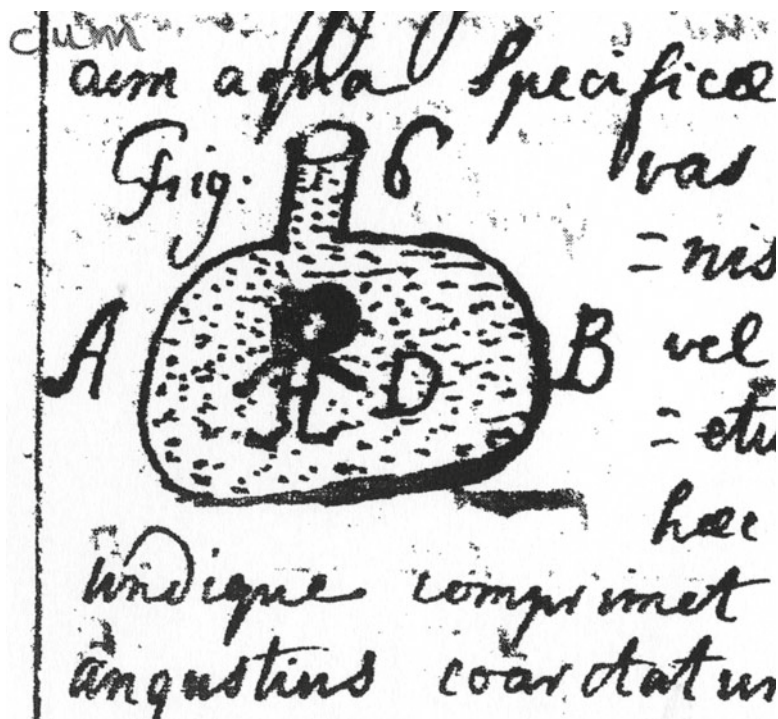 cum
aem aqua Specificæ
Fig. 6
vas
=nis
A D B vel
=etu
hæc
undique comprimet
angustius coarctatum